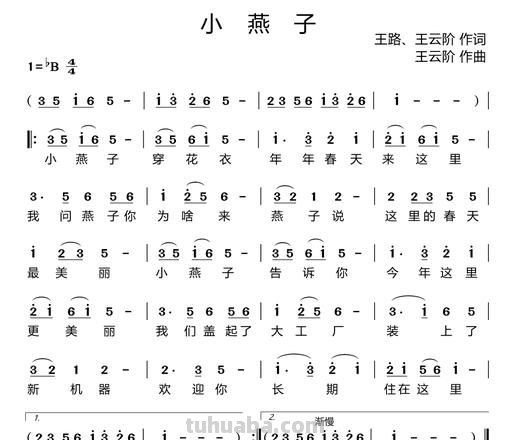 小燕子
王路、王云阶 作词
王云阶 作曲
1=♭B 4/4
( 3 5 i 6 5 - | i 3 2 6 5 - | 2 3 5 6 i 3 2 6 | i - - )
3 5 i 6 5 - | 3 5 6 i 5 - | i· 3 2 i | 2 i 6 i 5 -
小 燕 子 穿 花 衣 年 年 春 天 来 这 里
3· 5 6 5 6 | i 2 5 6 - | 3 2 1 2 - | 2 2 3 5 5
我 问 燕 子 你 为 啥 来 燕 子 说 这 里 的 春 天
i 2 3 5 - | 3 5 i 6 5 - | i 3 2 6 5 - | i· 3 2 i
最 美 丽 小 燕 子 告 诉 你 今 年 这 里
2 i 6 5 - | 2· 3 5 6 5 6 | 2 6 5 - | 3· i 6 5
更 美 丽 我 们 盖 起 了 大 工 厂 装 上 了
3 2 1 2 - | 2· 3 5 - | i· 3 2 i | 2 i 5 6 i 5
新 机 器 欢 迎 你 长 期 住 在 这 里
1. 2. 渐慢
tuhuaba.com